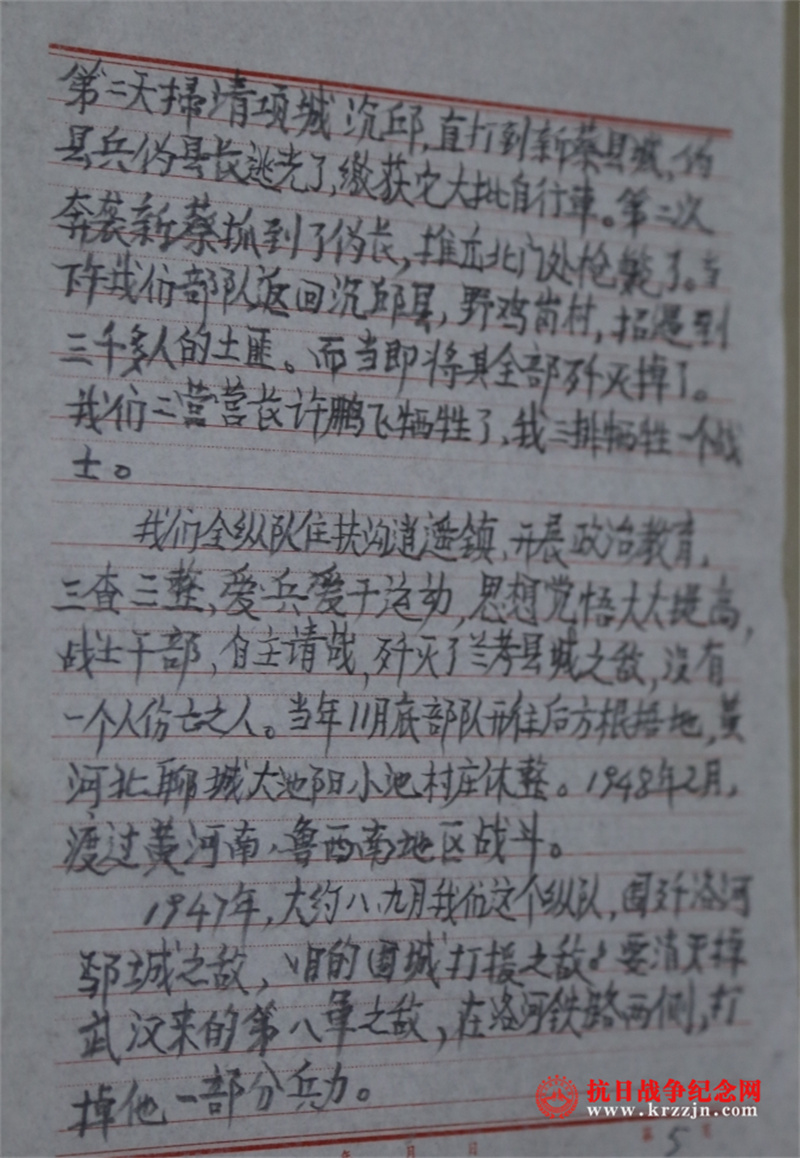 第二天掃清项城沉邱,直打到新蔡县城,伪
县兵伪县长逃光了,缴获它大批自行車。第二次
奔袭新蔡抓到了伪长,推出北门处枪毙了。当
下午我们部队返回沉邱县,野鸡岗村,招遇到
三千多人的土匪。而当即将其全部歼灭掉了。
我们二营营长许鹏飞牺牲了,我三排牺牲一个战
士。
我们全纵队住扶沟逍遥镇,开展政治教育,
三查三整,爱兵爱干运动,思想觉悟大大提高,
战士干部,自主请战,歼灭了兰考县城之敌,没有
一个人伤亡之人。当年11月底部队开往后方根据地,黄
河北聊城大池阳小池村庄休整。1948年2月,
渡过黄河南,鲁西南地区战斗。
1947年,大约八.九月我们这个纵队,围歼洛河
郾城之敌,目的围城打援之敌。要消灭掉
武汉来的第八軍之敌,在洛河铁路两侧,打
掉他一部分兵力。
年 月 日 第 5 页
抗日战争纪念网
www.krzzjn.com